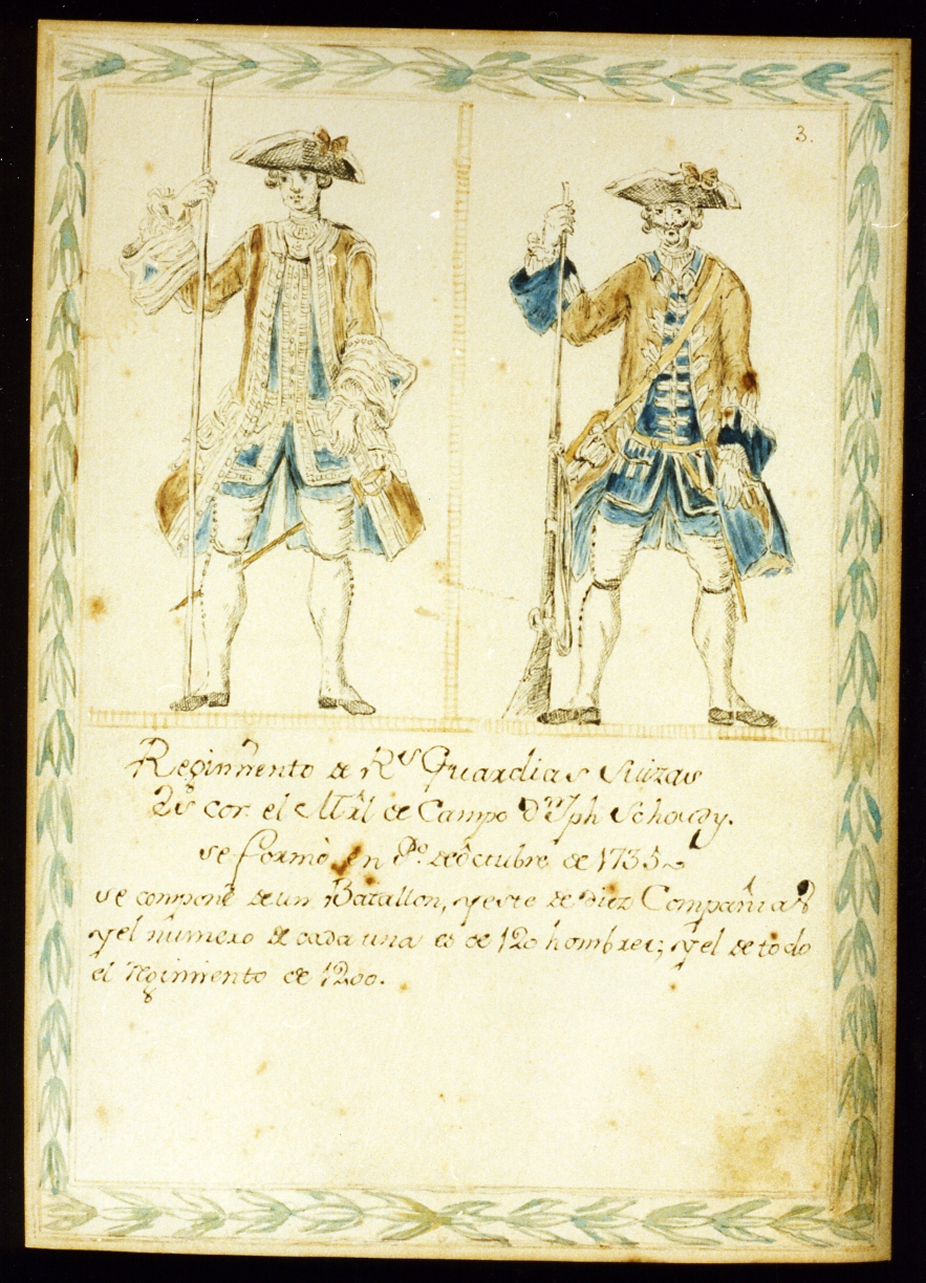 3.
Regimiento de Rˢ Guardias Suizas
Su cor. el Mrl de Campo Dⁿ Jph Schoudy.
se formò en Pº. de Octubre de 1735
se compone de un Batallon, y este de diez Compañias
y el número de cada una es de 120 hombres; y el de todo
el regimiento de 1200.